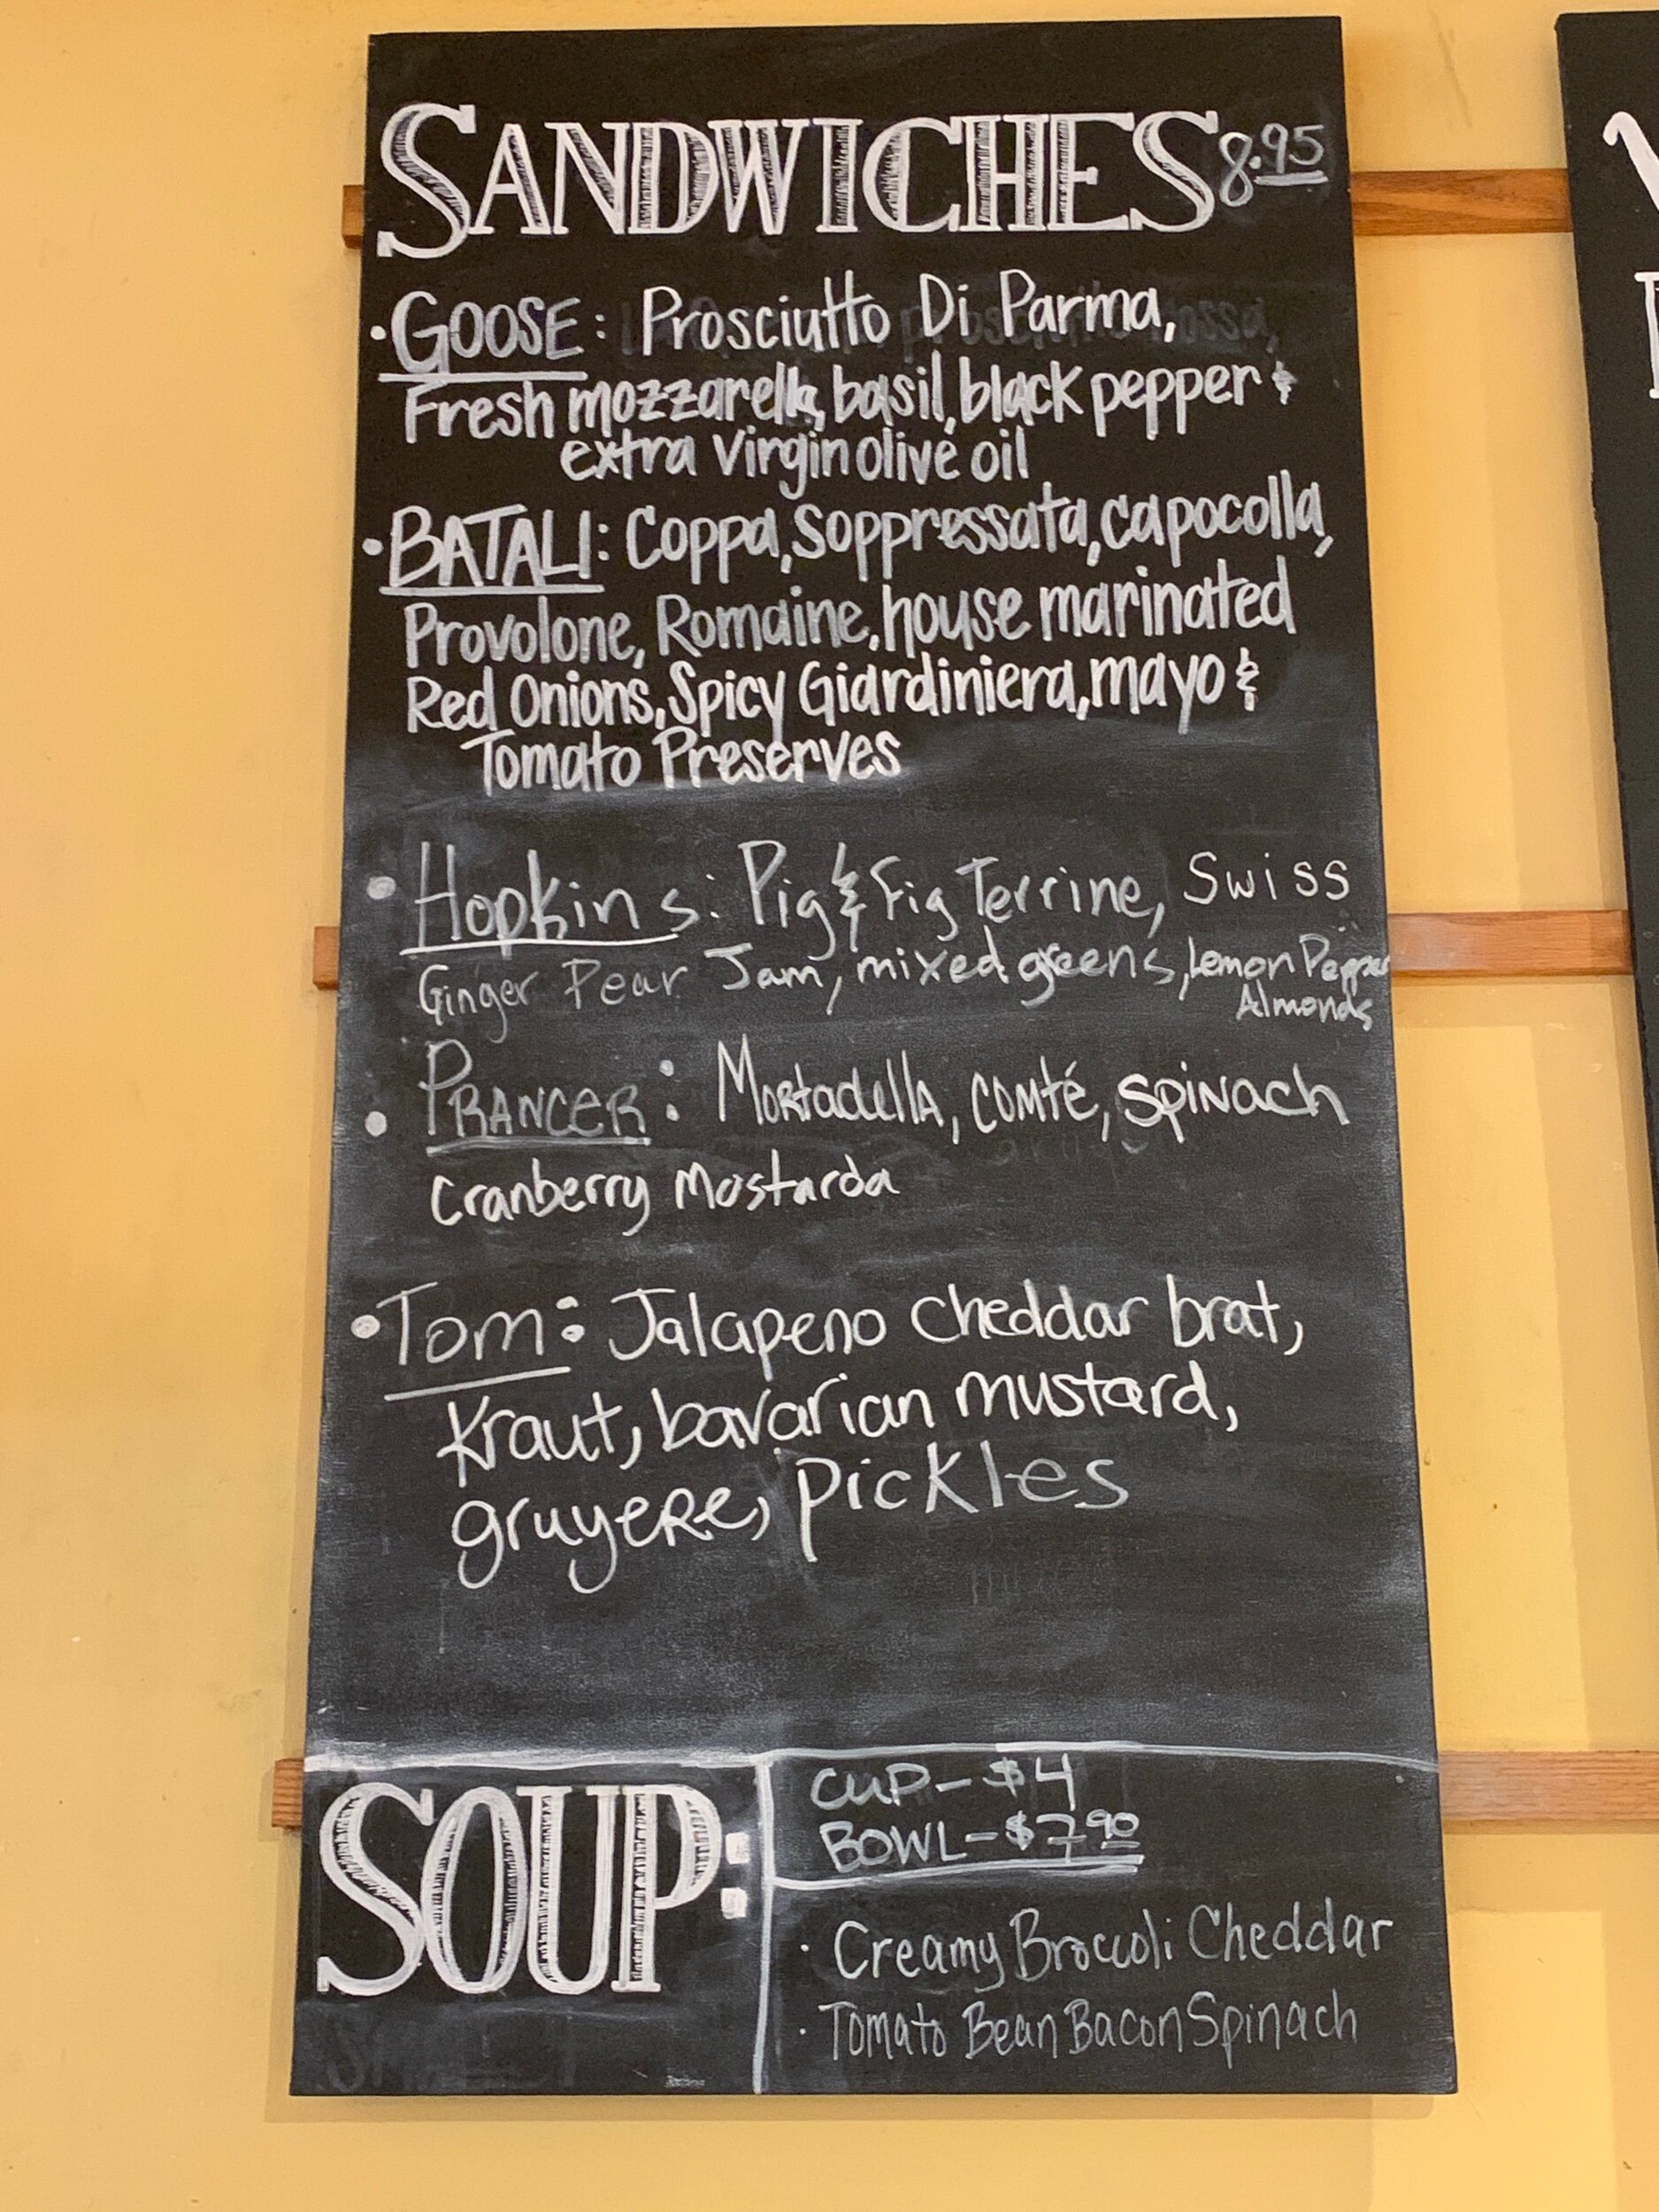 SANDWICHES 8.95
• GOOSE: Prosciutto Di Parma,
Fresh mozzarella, basil, black pepper &
extra virgin olive oil
• BATALI: Coppa, Soppressata, capocolla,
Provolone, Romaine, house marinated
Red Onions, Spicy Giardiniera, mayo &
Tomato Preserves
• Hopkins: Pig & Fig Terrine, Swiss
Ginger Pear Jam, mixed greens, Lemon Pepper
Almonds
• PRANCER: Mortadella, comté, spinach
Cranberry Mostarda
• Tom: Jalapeno cheddar brat,
Kraut, bavarian mustard,
gruyere, pickles
SOUP:
CUP - $4
BOWL - $7.90
· Creamy Broccoli Cheddar
· Tomato Bean Bacon Spinach